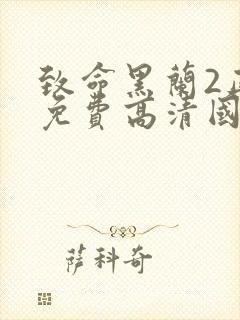 致命黑蘭2正
免費高清國
薩科奇